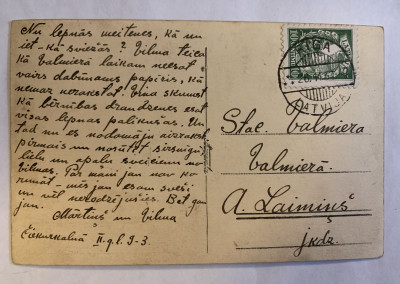 Nu lepnās meitenes, kā nu
iet - kā sviežās? Vilma teica
kā Valmierā laikam neesot
vairs dabūnams papīrs, kā
nemaz nerakstat. Viņa skumst
kā bērnības draudzenes esat
visas lepnas palikušas. Un
tad nu es nodomāju aizrakst
pirmais un nosūtīt sirsnīgu
lielu un apaļu sveicienu no
Vilmas. Par mani jau nav ko
runāt - mēs jau esam sveši
un vēl neredzējušies. Bet gan
jau.
Mārtiņš un Vilma
Čiekurkalnā II. g. l. 9-3.
RĪGA
LATVIJA
LATVIJA
Stac. Valmiera
Valmierā.
A. Laimiņš
jkdz.